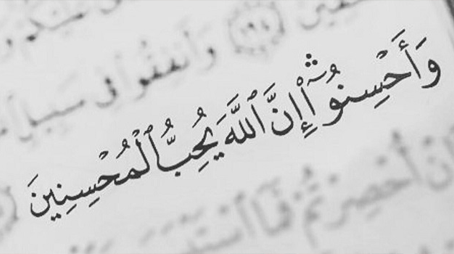 وَأَنفِقُوا۟ فِى سَبِيلِ
وَأَحْسِنُوٓا۟ ۛ إِنَّ ٱللَّهَ يُحِبُّ ٱلْمُحْسِنِينَ
أُحْصِرْتُمْ فَمَا ٱسْتَيْسَرَ